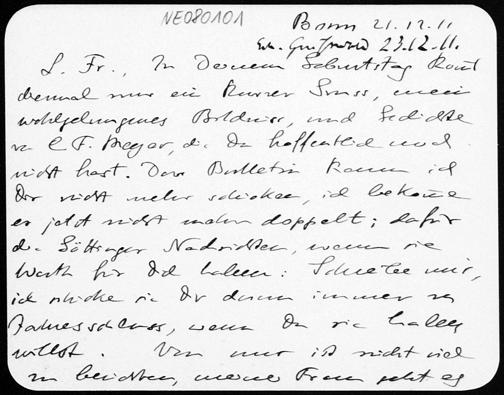 NE080101
Bonn 21.12.11
Eh. Greifswald 23.12.11.
L. Fr., Zu Deinem Geburtstag kommt
diesmal nur ein kurzer Gruss, mein
wohlgelungenes Bildniss, und Gedichte
von C. F. Meyer, die Du hoffentlich noch
nicht hast. Das Bulletin kann ich
Dir nicht mehr schicken, ich bekomme
es jetzt nicht mehr doppelt; dafür
die Göttinger Nachrichten, wenn sie
Werth für Dich haben: Schreibe mir,
ich schicke sie Dir dann immer zu
Jahresschluss, wenn Du sie haben
willst. Von mir ist nicht viel
zu berichten, meiner Frau geht es